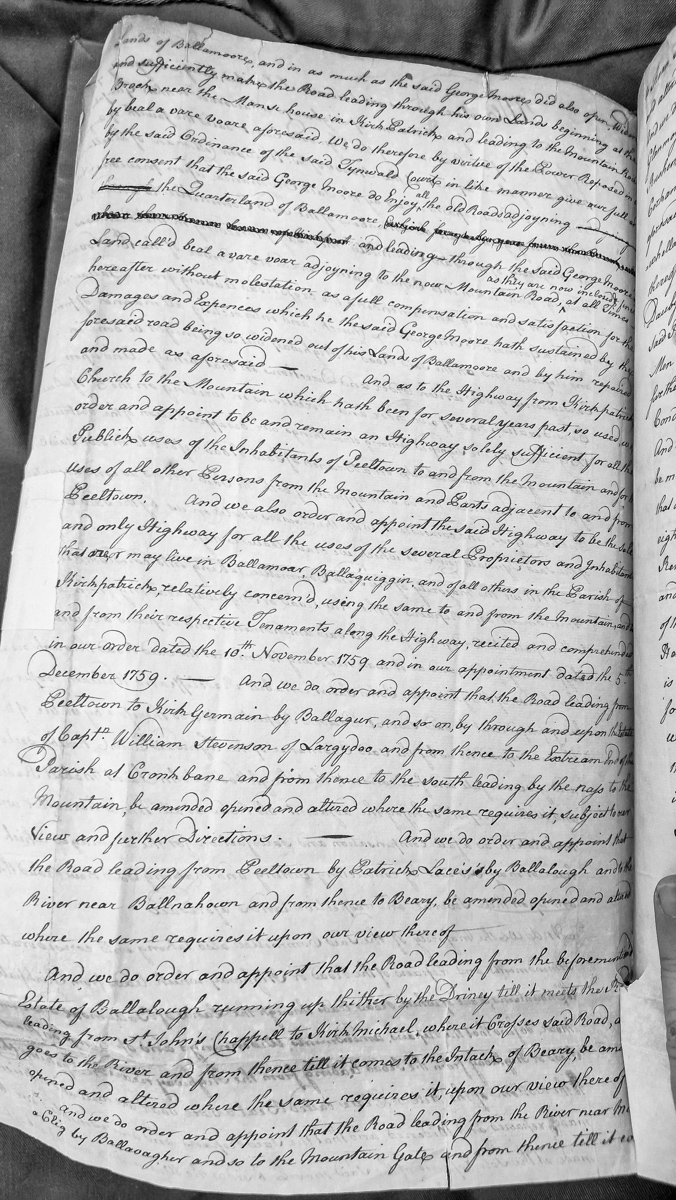 Lands of Ballamoore, and in as much as the said George Moore did also open, widen
and sufficiently make the Road leading through his own Lands beginning at the
Broch near the Manse house in Kirk Patrick and leading to the Mountain Road
by beal a vare voare aforesaid. We do therefore by virtue of the Power Reposed in
by the said Ordinance of the said Tynwald Court in like manner give our full
free consent that the said George Moore do Enjoy all the old Roads adjoyning
the Quarterland of Ballamoore
and leading through the said George Moore
Land call'd beal a vare voar adjoyning to the now Mountain Road, as they are now inclosed at all Times
hereafter without molestation as a full compensation and satisfaction for the
Damages and Expences which he the said George Moore hath sustained by the
foresaid road being so widened out of his Land of Ballamoore and by him repaired
and made as aforesaid — And as to the Highway from Kirkpatrick
Church to the Mountain which hath been for several years past so used, we
order and appoint to be and remain an Highway solely sufficient for all the
Publick uses of the Inhabitants of Peeltown to and from the Mountain and for
uses of all other Persons from the Mountain and Parts adjacent to and from
Peeltown. And we also order and appoint the said Highway to be the Sole
and only Highway for all the uses of the several Proprietors and Inhabitants
that are, or may live in Ballamoar, Ballaquiggin, and of all others in the Parish of
Kirkpatrick relatively concern'd, using the same to and from the Mountain, and to
and from their respective Tenaments along the Highway, recited and comprehended
in our order dated the 10th November 1759 and in our appointment dated the 5th
December 1759. — And we do order and appoint that the Road leading from
Peeltown to Kirk Germain by Ballagur, and so on, by through and upon the Estate
of Captn William Stevinson of Largydoo and from thence to the Extream End of the
Parish at Cronkbane and from thence to the south leading by the nass to the
Mountain, be amended opined and altered where the same requires it, subject to our
View and further Directions. — And we do order and appoint that
the Road leading from Peeltown by Patrick Lace's by Ballalough and to the
River near Ballnahown and from thence to Beary, be amended opined and altered
where the same requires it upon our view thereof
And we do order and appoint that the Road leading from the beforementioned
Estate of Ballalough running up thither by the Driney till it meets the
leading from St. John's Chappell to Kirk Michael, where it Crosses said Road, a
goes to the River and from thence till it comes to the Intack of Beary, be
opined and altered where the same requires it, upon our view there of
And we do order and appoint that the Road leading from the River near
a Clig by Ballavagher and so to the Mountain Gate and from thence till it